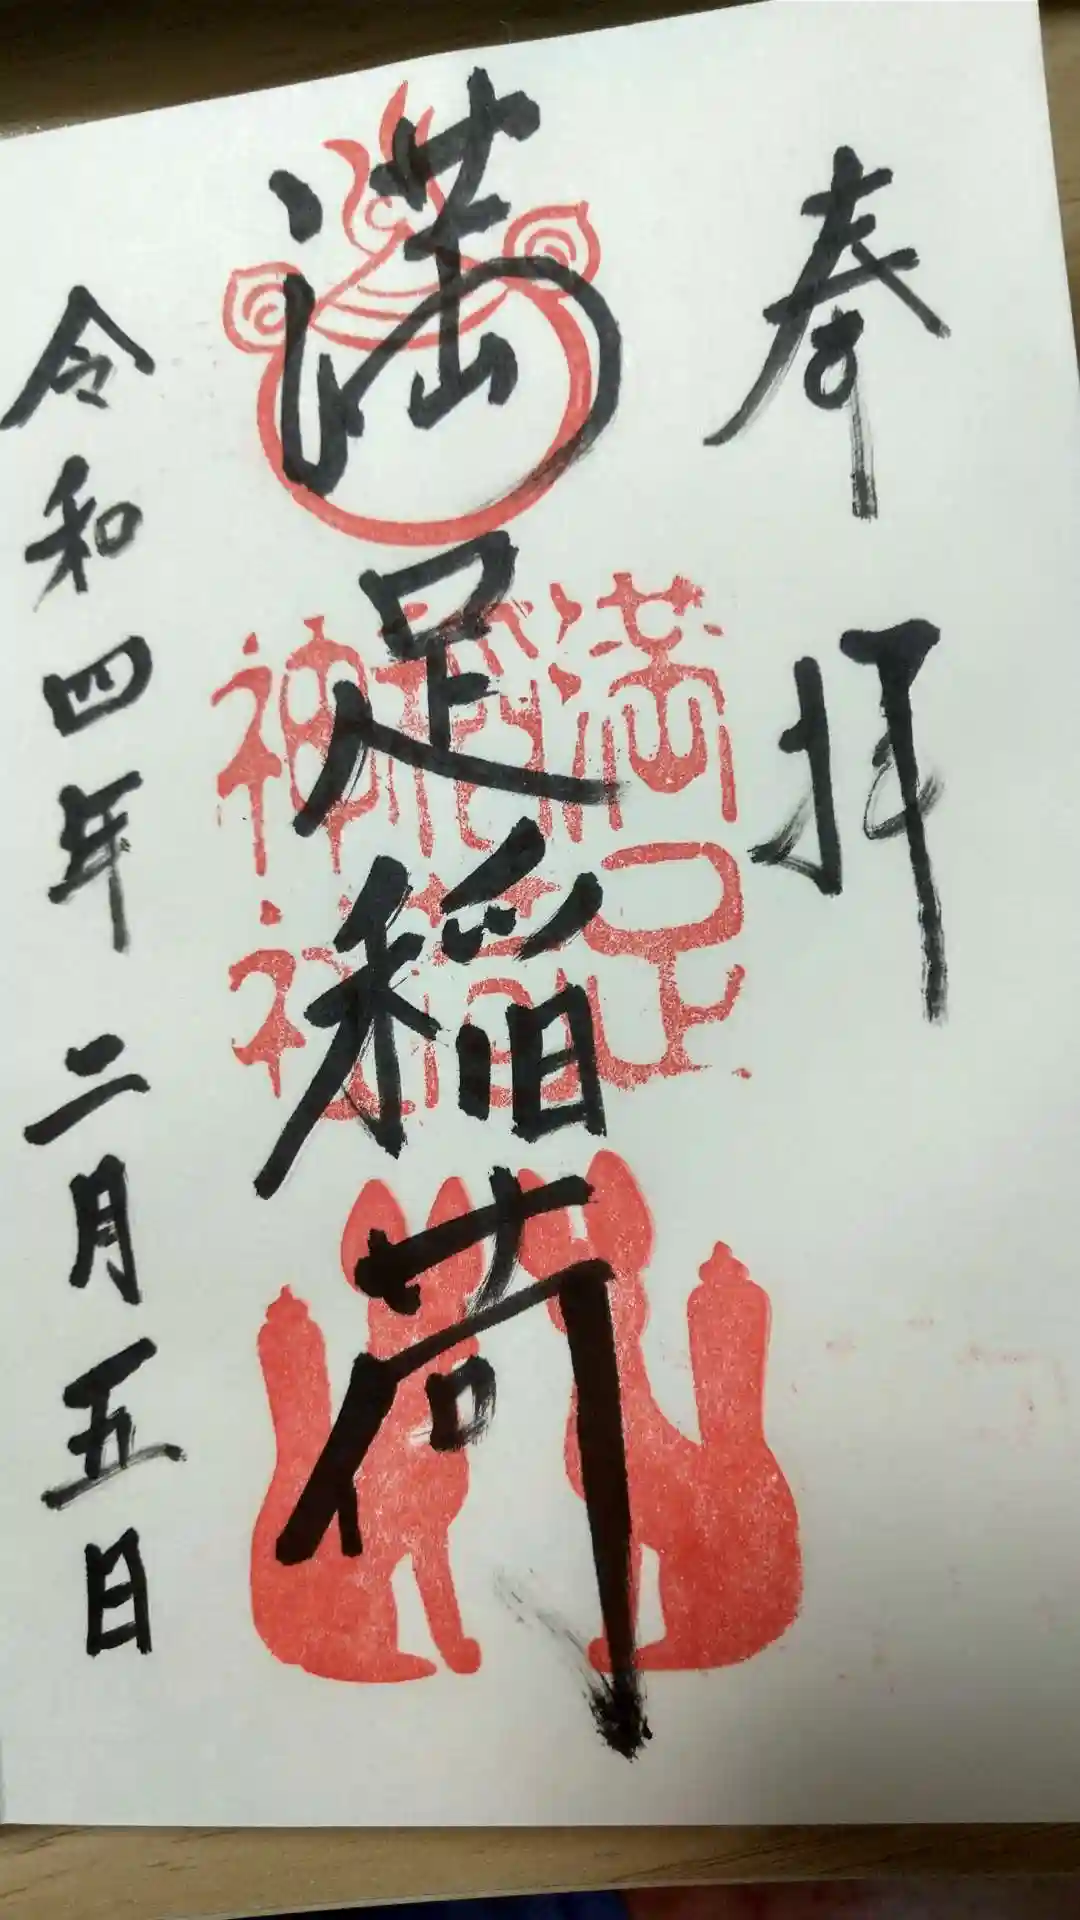 奉拝
満足稲荷
満足
稲荷
神社
令和四年二月五日